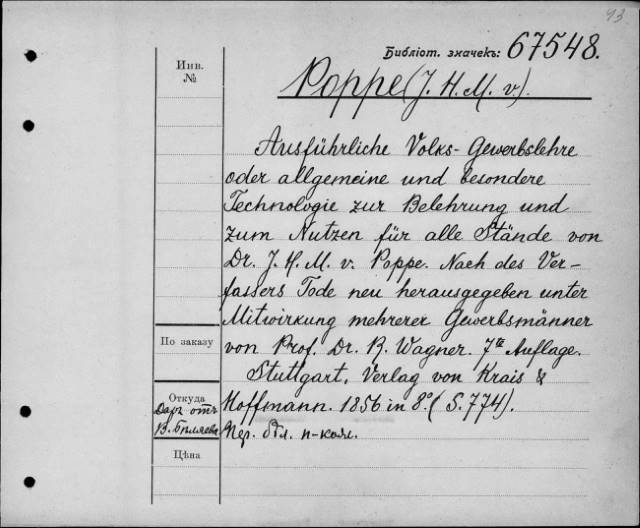 43
Библіот. значекъ: 67548.
Инв.
№
Poppe (J. H. M. v.).
Ausführliche Volks-Gewerbslehre
oder allgemeine und besondere
Technologie zur Belehrung und
zum Nutzen für alle Stände von
Dr. J. H. M. v. Poppe. Nach des Ver-
fassers Tode neu herausgegeben unter
Mitwirkung mehrerer Gewerbsmänner
По заказу
von Prof. Dr. R. Wagner. 7te Auflage.
Stuttgart, Verlag von Krais &
Откуда
Hoffmann. 1856 in 8° (S. 774).
Даръ отъ
В. Бѣляева
Пер. бѣл. п-кол.
Цѣна